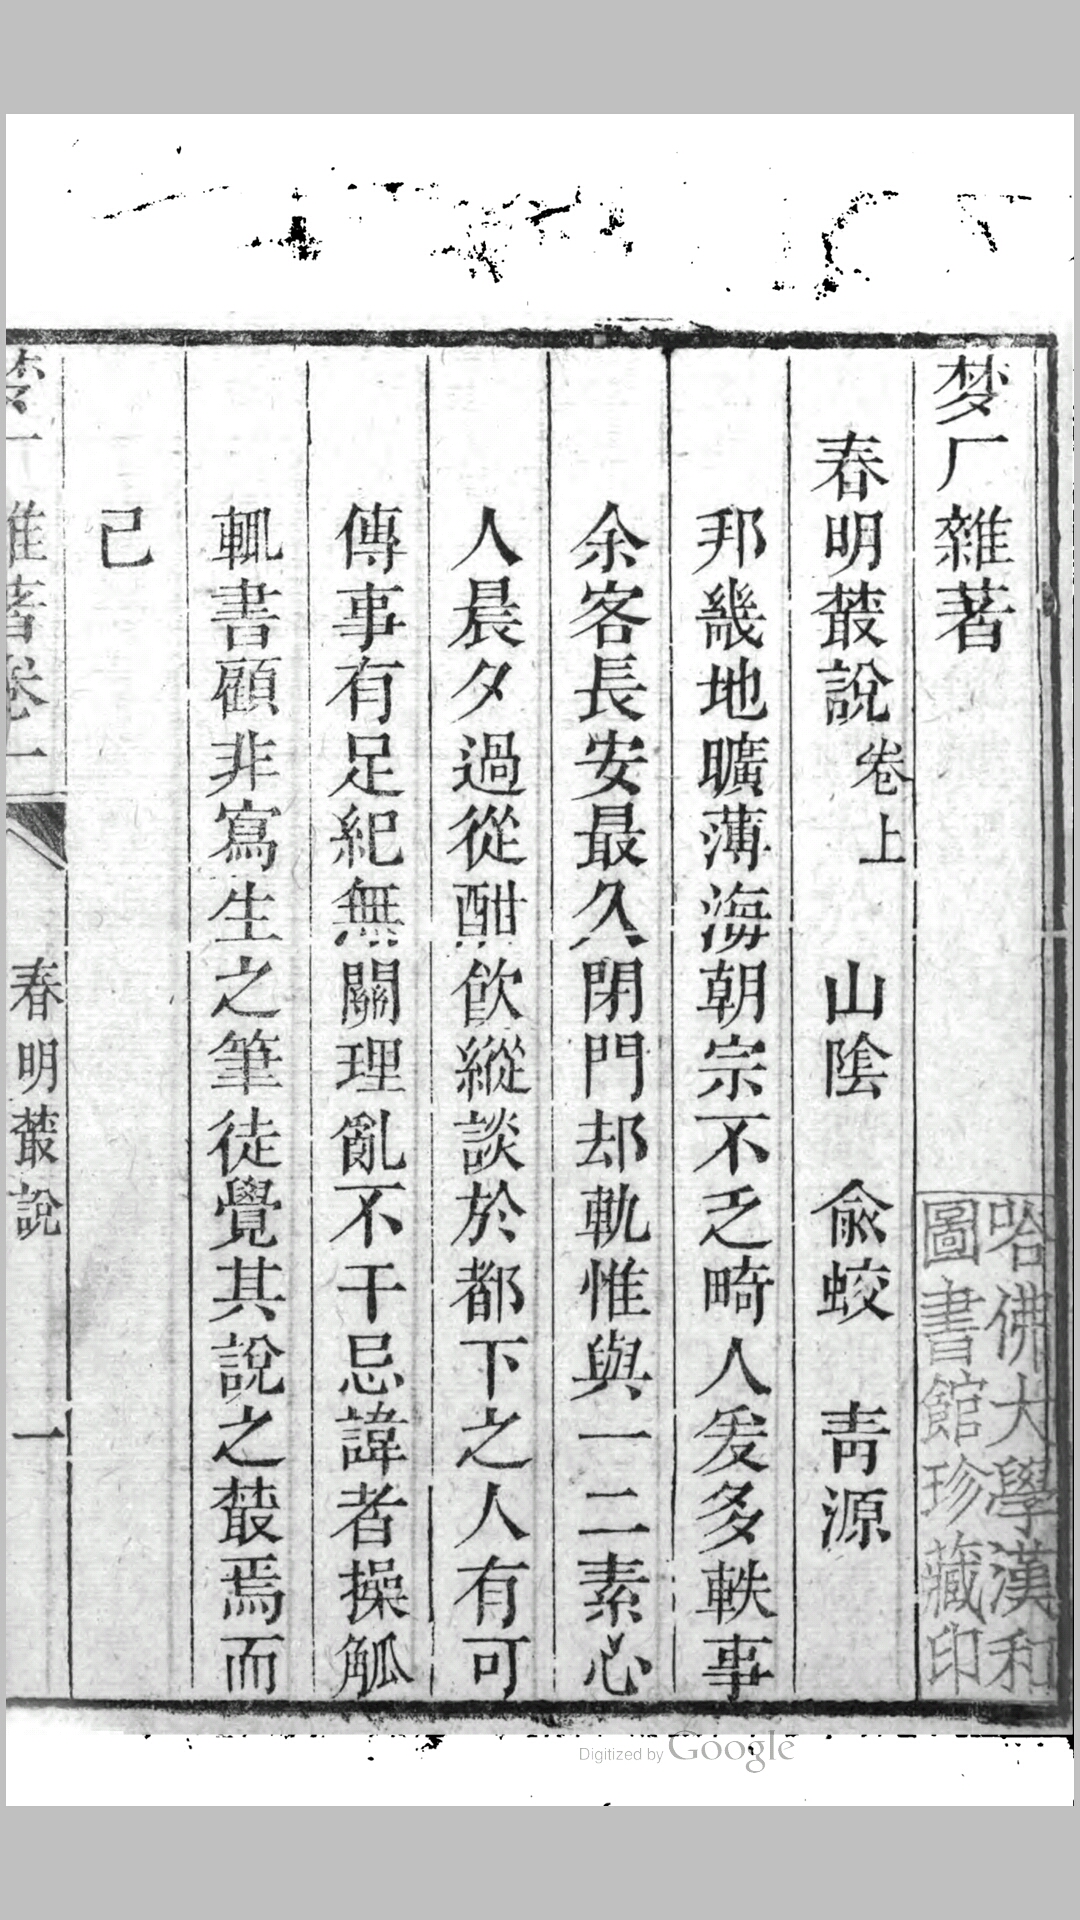 梦厂雜著
春明叢說卷上 山陰 俞蛟 青源
邦畿地曠薄海朝宗不乏畸人爰多軼事
余客長安最久閉門却軌惟與一二素心
人晨夕過從酣飲縱談於都下之人有可
傳事有足紀無關理亂不干忌諱者操觚
輒書顧非寫生之筆徒覺其說之叢焉而
已
梦厂雜著卷一 春明叢說 一
哈佛大學漢和
圖書館珍藏印
Digitized by Google